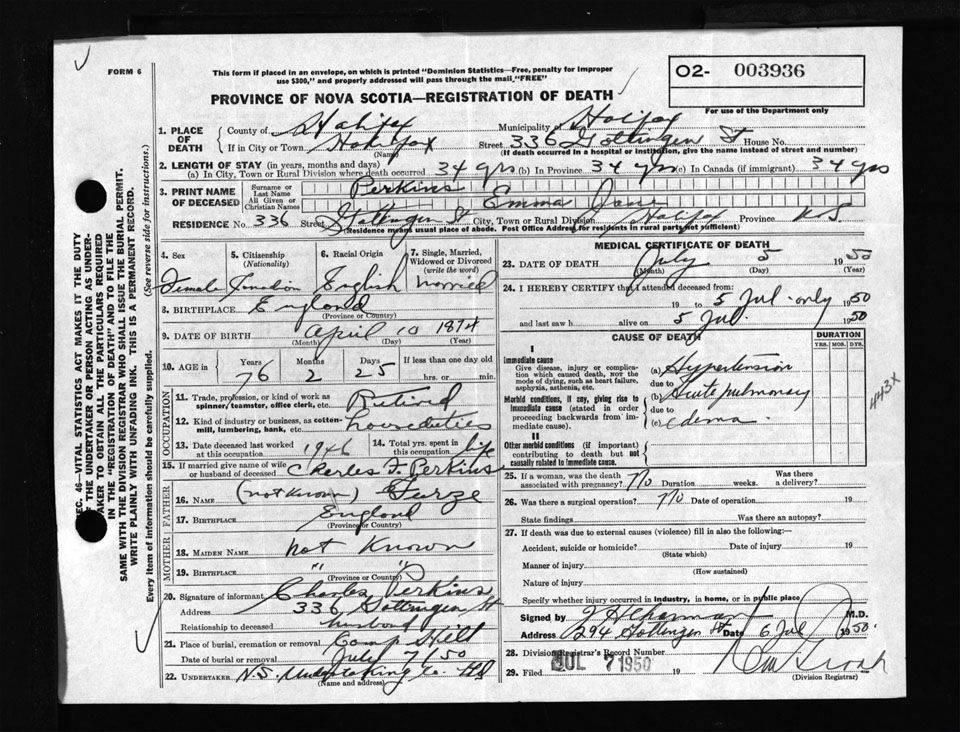 FORM 6
This form if placed in an envelope, on which is printed "Dominion Statistics—Free, penalty for improper
use $300," and properly addressed will pass through the mail, "FREE"
PROVINCE OF NOVA SCOTIA—REGISTRATION OF DEATH
O2- 003936
For use of the Department only
SEC. 46—VITAL STATISTICS ACT MAKES IT THE DUTY
OF THE UNDERTAKER OR PERSON ACTING AS UNDER-
TAKER TO OBTAIN ALL THE PARTICULARS REQUIRED
IN THE "REGISTRATION OF DEATH" AND TO FILE THE
SAME WITH THE DIVISION REGISTRAR WHO SHALL ISSUE THE BURIAL PERMIT.
WRITE PLAINLY WITH UNFADING INK. THIS IS A PERMANENT RECORD.
Every item of information should be carefully supplied. (See reverse side for instructions.)
1. PLACE OF DEATH
County of Halifax Municipality of Halifax
If in City or Town, Halifax (Name) Street 336 Gottingen St House No.
(If death occurred in a hospital or institution, give the name instead of street and number)
2. LENGTH OF STAY (in years, months and days)
(a) In City, Town or Rural Division where death occurred 34 yrs (b) in Province 34 yrs (c) In Canada (if immigrant) 34 yrs
3. PRINT NAME OF DECEASED
Surname or Last Name Perkins
All Given or Christian Names Emma Jane
RESIDENCE No. 336 Street Gottingen St City, Town or Rural Division Halifax Province N.S.
(Residence means usual place of abode. Post Office Address for residents in rural parts not sufficient)
4. Sex Female
5. Citizenship (Nationality) Canadian
6. Racial Origin English
7. Single, Married, Widowed or Divorced (write the word) Married
8. BIRTHPLACE England
(Province or Country)
9. DATE OF BIRTH April 10 1874
(Month) (Day) (Year)
10. AGE in Years 76 Months 2 Days 25 If less than one day old
hrs. or min.
OCCUPATION
11. Trade, profession, or kind of work as spinner, teamster, office clerk, etc. Retired
12. Kind of industry or business, as cotton-mill, lumbering, bank, etc. housduties
13. Date deceased last worked at this occupation 1946
14. Total yrs. spent in this occupation life
15. If married give name of wife or husband of deceased Charles F. Perkins
FATHER
16. NAME (not known) Furze
17. BIRTHPLACE England
(Province or Country)
MOTHER
18. MAIDEN NAME not Known
19. BIRTHPLACE " "
(Province or Country)
20. Signature of informant Charles Perkins
Address 336 Gottingen St
Relationship to deceased husband
21. Place of burial, cremation or removal Camp Hill
Date of burial or removal July 7/50
22. UNDERTAKER N.S. Undertaking Co.
(Name and address)
MEDICAL CERTIFICATE OF DEATH
23. DATE OF DEATH July 5 1950
(Month) (Day) (Year)
24. I HEREBY CERTIFY that I attended deceased from:
19 to 5 Jul. only 1950
and last saw h alive on 5 Jul. 1950
CAUSE OF DEATH
DURATION
YRS. MOS. DYS.
I
Immediate cause
Give disease, injury or complication which caused death, NOT the mode of dying, such as heart failure, asphyxia, asthenia, etc.
(a) Hypertension
due to
Morbid conditions, if any, giving rise to immediate cause (stated in order proceeding backwards from immediate cause).
(b) Acute pulmonary
due to
(c) edema
443X
II
Other morbid conditions (if important) contributing to death but not causally related to immediate cause.
25. If a woman, was the death associated with pregnancy? no Duration weeks. Was there a delivery?
26. Was there a surgical operation? no Date of operation 19
State findings Was there an autopsy?
27. If death was due to external causes (violence) fill in also the following:—
Accident, suicide or homicide? Date of injury 19
(State which)
Manner of injury
(How sustained)
Nature of injury
Specify whether injury occurred in industry, in home, or in public place
Signed by M.D.
Address 294 Gottingen St Date 6 Jul 1950.
28. Division Registrar's Record Number
29. Filed JUL 7 1950 19
(Division Registrar)